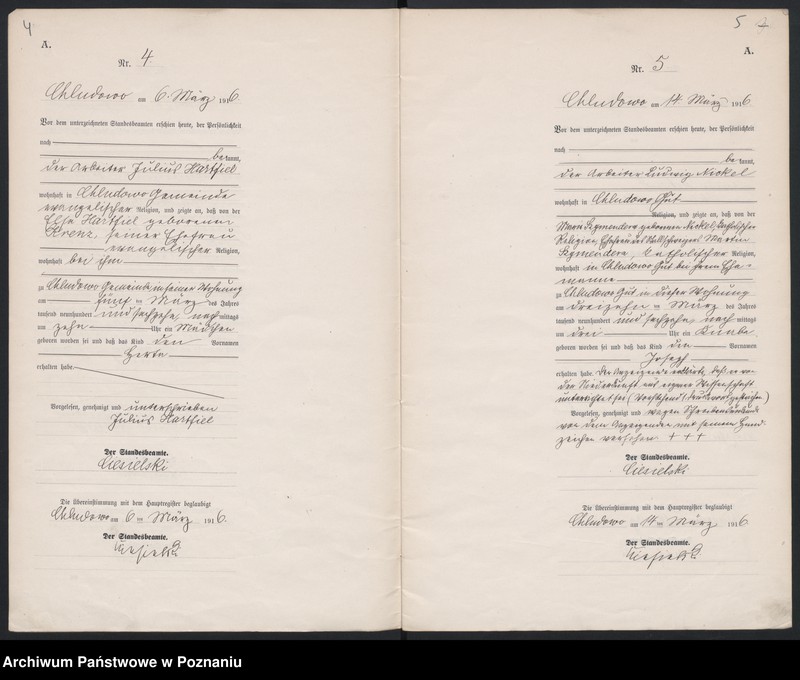 4
A.
Nr. 4
Chludowo am 6. März 1916.
Vor dem unterzeichneten Standesbeamten erschien heute, der Persönlichkeit
nach
bekannt,
der Arbeiter Julius Hartfiel
wohnhaft in Chludowo Gemeinde
evangelischer Religion, und zeigte an, daß von der
Else Hartfiel geborenen
Krenz, seiner Ehefrau
evangelischer Religion,
wohnhaft bei ihm
zu Chludowo Gemeinde in seiner Wohnung
am fünf ten März des Jahres
tausend neunhundert und sechzehn, nachmittags
um zehn Uhr ein Mädchen
geboren worden sei und daß das Kind den Vornamen
Herta
erhalten habe.
Vorgelesen, genehmigt und unterschrieben
Julius Hartfiel
Der Standesbeamte.
Ciesielski
Die Übereinstimmung mit dem Hauptregister beglaubigt
Chludowo am 6 ten März 1916.
Der Standesbeamte.
Ciesielski
5
A.
Nr. 5
Chludowo am 14. März 1916
Vor dem unterzeichneten Standesbeamten erschien heute, der Persönlichkeit
nach
bekannt,
der Arbeiter Ludwig Nickel
wohnhaft in Chludowo Gut
Religion, und zeigte an, daß von der
geborenen Nickel, katholischer
Religion, Ehefrau des Martin
katholischer Religion,
wohnhaft in Chludowo Gut bei ihrem Ehe-
manne
zu Chludowo Gut in dieser Wohnung
am dreizehn ten März des Jahres
tausend neunhundert und sechzehn, nachmittags
um drei Uhr ein Knabe
geboren worden sei und daß das Kind den Vornamen
Joseph
erhalten habe. Der Anzeigende erklärte, daß er von
der Niederkunft aus eigener Wissenschaft
unterrichtet sei
Vorgelesen, genehmigt und wegen Schreibensunkunde
von dem Anzeigenden mit seinem Hand-
zeichen versehen + + +
Der Standesbeamte.
Ciesielski
Die Übereinstimmung mit dem Hauptregister beglaubigt
Chludowo am 14 ten März 1916
Der Standesbeamte.
Ciesielski
Archiwum Państwowe w Poznaniu